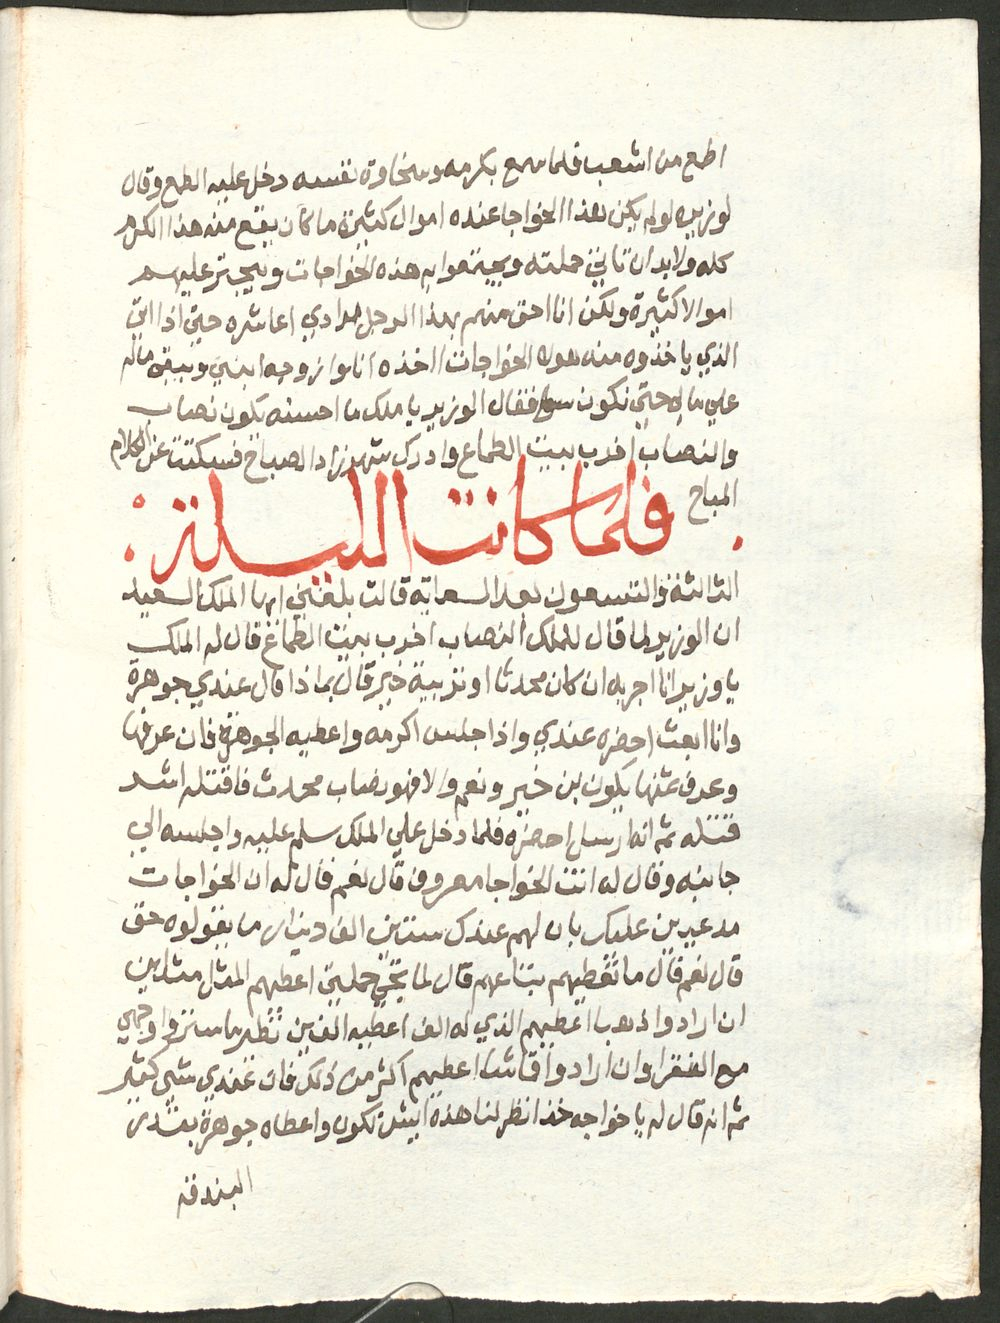 اطمع من اشعب فلما سمع بكرمه وسخاوة نفسه دخل عليه الطمع وقال
لوزيره لولم يكن هذا الخواجا عنده اموال كثيرة ما كان يقع منه هذا الكرم
كله ولا بد ان تاتي حملته ويجتمعوا به هذه الخواجات ويبحتر عليهم
اموالا كثيرة ولكن انا احق منهم بهذا الرجل مرادي اعاشره حتي اذا اتي
الذي ياخذوه منه هوله الخواجات اخذه انا وازوجه ابنتي ويبقي ماله
علي مالي حتي نكون سوا فقال الوزير يا ملك ما احسنه يكون نصاب
والنصاب اخرب بيت الطماع وادرك شهرزاد الصباح فسكتت عن الكلام
المباح
فلما كانت الليلة
الثالثة والتسعون بعد السعماية قالت بلغني ايها الملك السعيد
ان الوزير لما قال للملك النصاب اخرب بيت الطماع قال له الملك
يا وزير انا اجربه ان كان محدثا او تربية خير قال بماذا قال عندي جوهرة
وانا ابعث احضره عندي واذا جلس اكرمه واعطيه الجوهرة فان عرفها
وعرف ثمنها يكون بن خير ونعم والا فهو نصاب محدث فاقتله اشد
قتله ثم انه ارسل احضره فلما دخل علي الملك سلم عليه واجلسه الي
جانبه وقال له انت الخواجا معروف قال نعم قال له ان الخواجات
مدعيين عليك بان لهم عندك ستين الف دينار ما يقولوه حق
قال نعم قال ما تعطيهم بتاعهم قال لما تجي حملتي اعطيهم المثل مثلين
ان ارادوا ذهب اعطيهم الذي له الف اعطيه الفين نظير ما ستروا وجهي
مع الفقرا وان ارادوا قماشا اعطيهم اكثر من ذلك فان عندي شي كثير
ثم انه قال له يا خواجه خذ انظر لنا هذه ايش تكون واعطاه جوهرة بقدر
البندقه